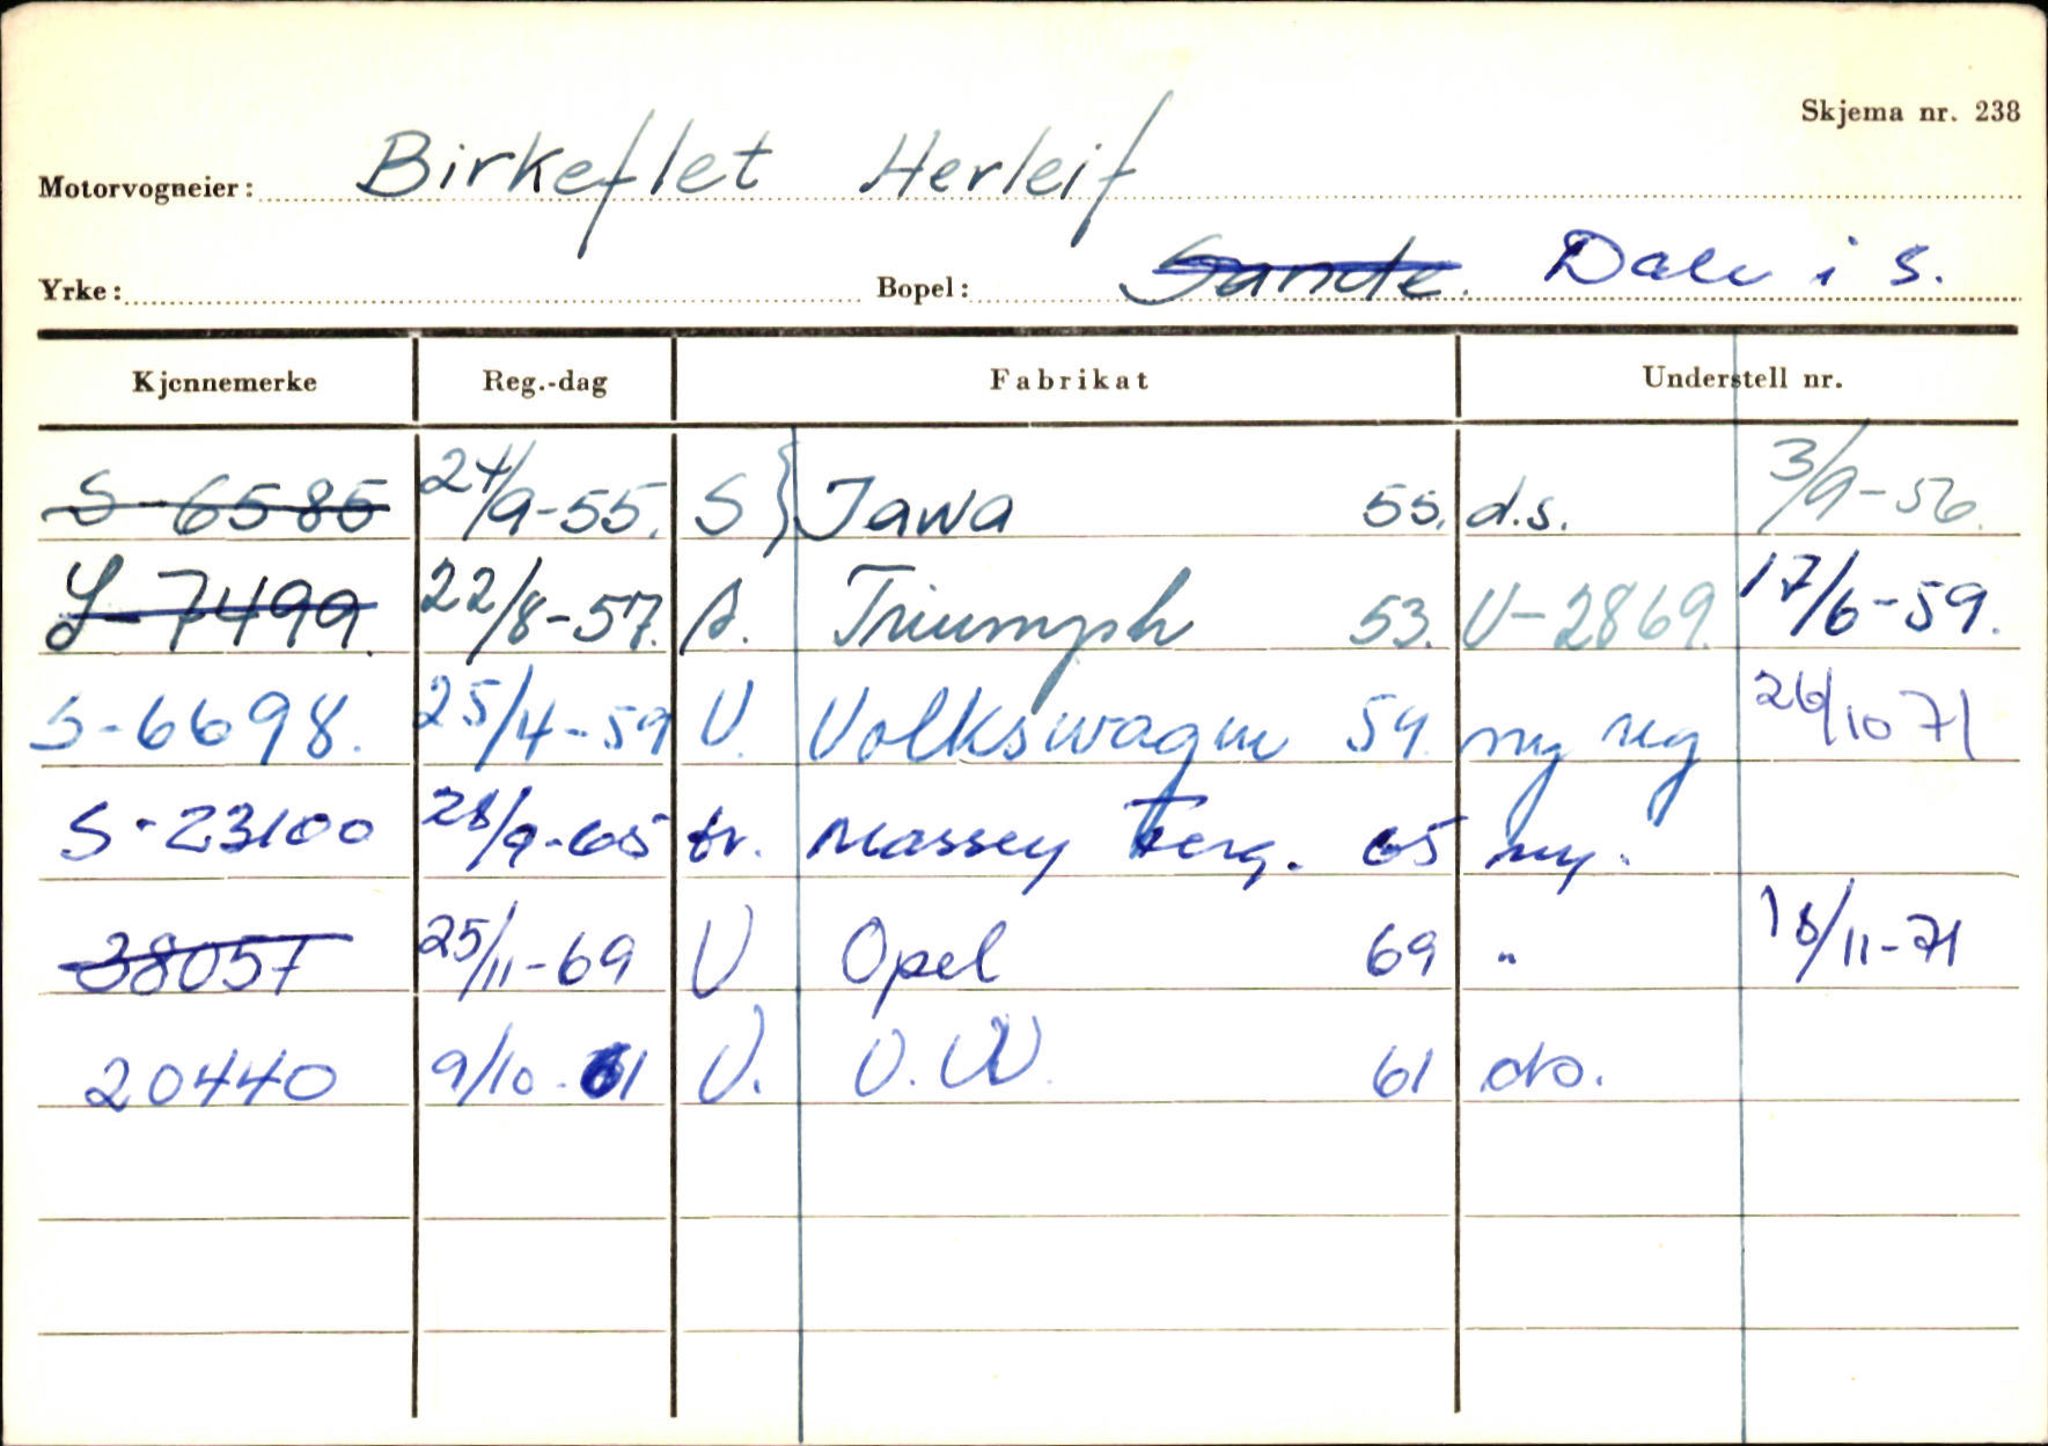 Skjema nr. 238
Motorvogneier: Birkeflet Herleif
Yrke: Bopel: Sande. Dale i S.
Kjennemerke Reg.-dag Fabrikat Understell nr.
S-6585 24/9-55. S } Jawa 55. d.s. 3/9-56.
S-7499. 22/8-57. A. Triumph 53. U-2869. 17/6-59.
S-6698. 25/4-59 V. Volkswagen 59. ny reg 26/10 71
S-23100 28/9-65 tr. Massey Ferg. 65 ny.
38057 25/11-69 V Opel 69 " 18/11-71
20440 9/10-61 V. V.W. 61 do.